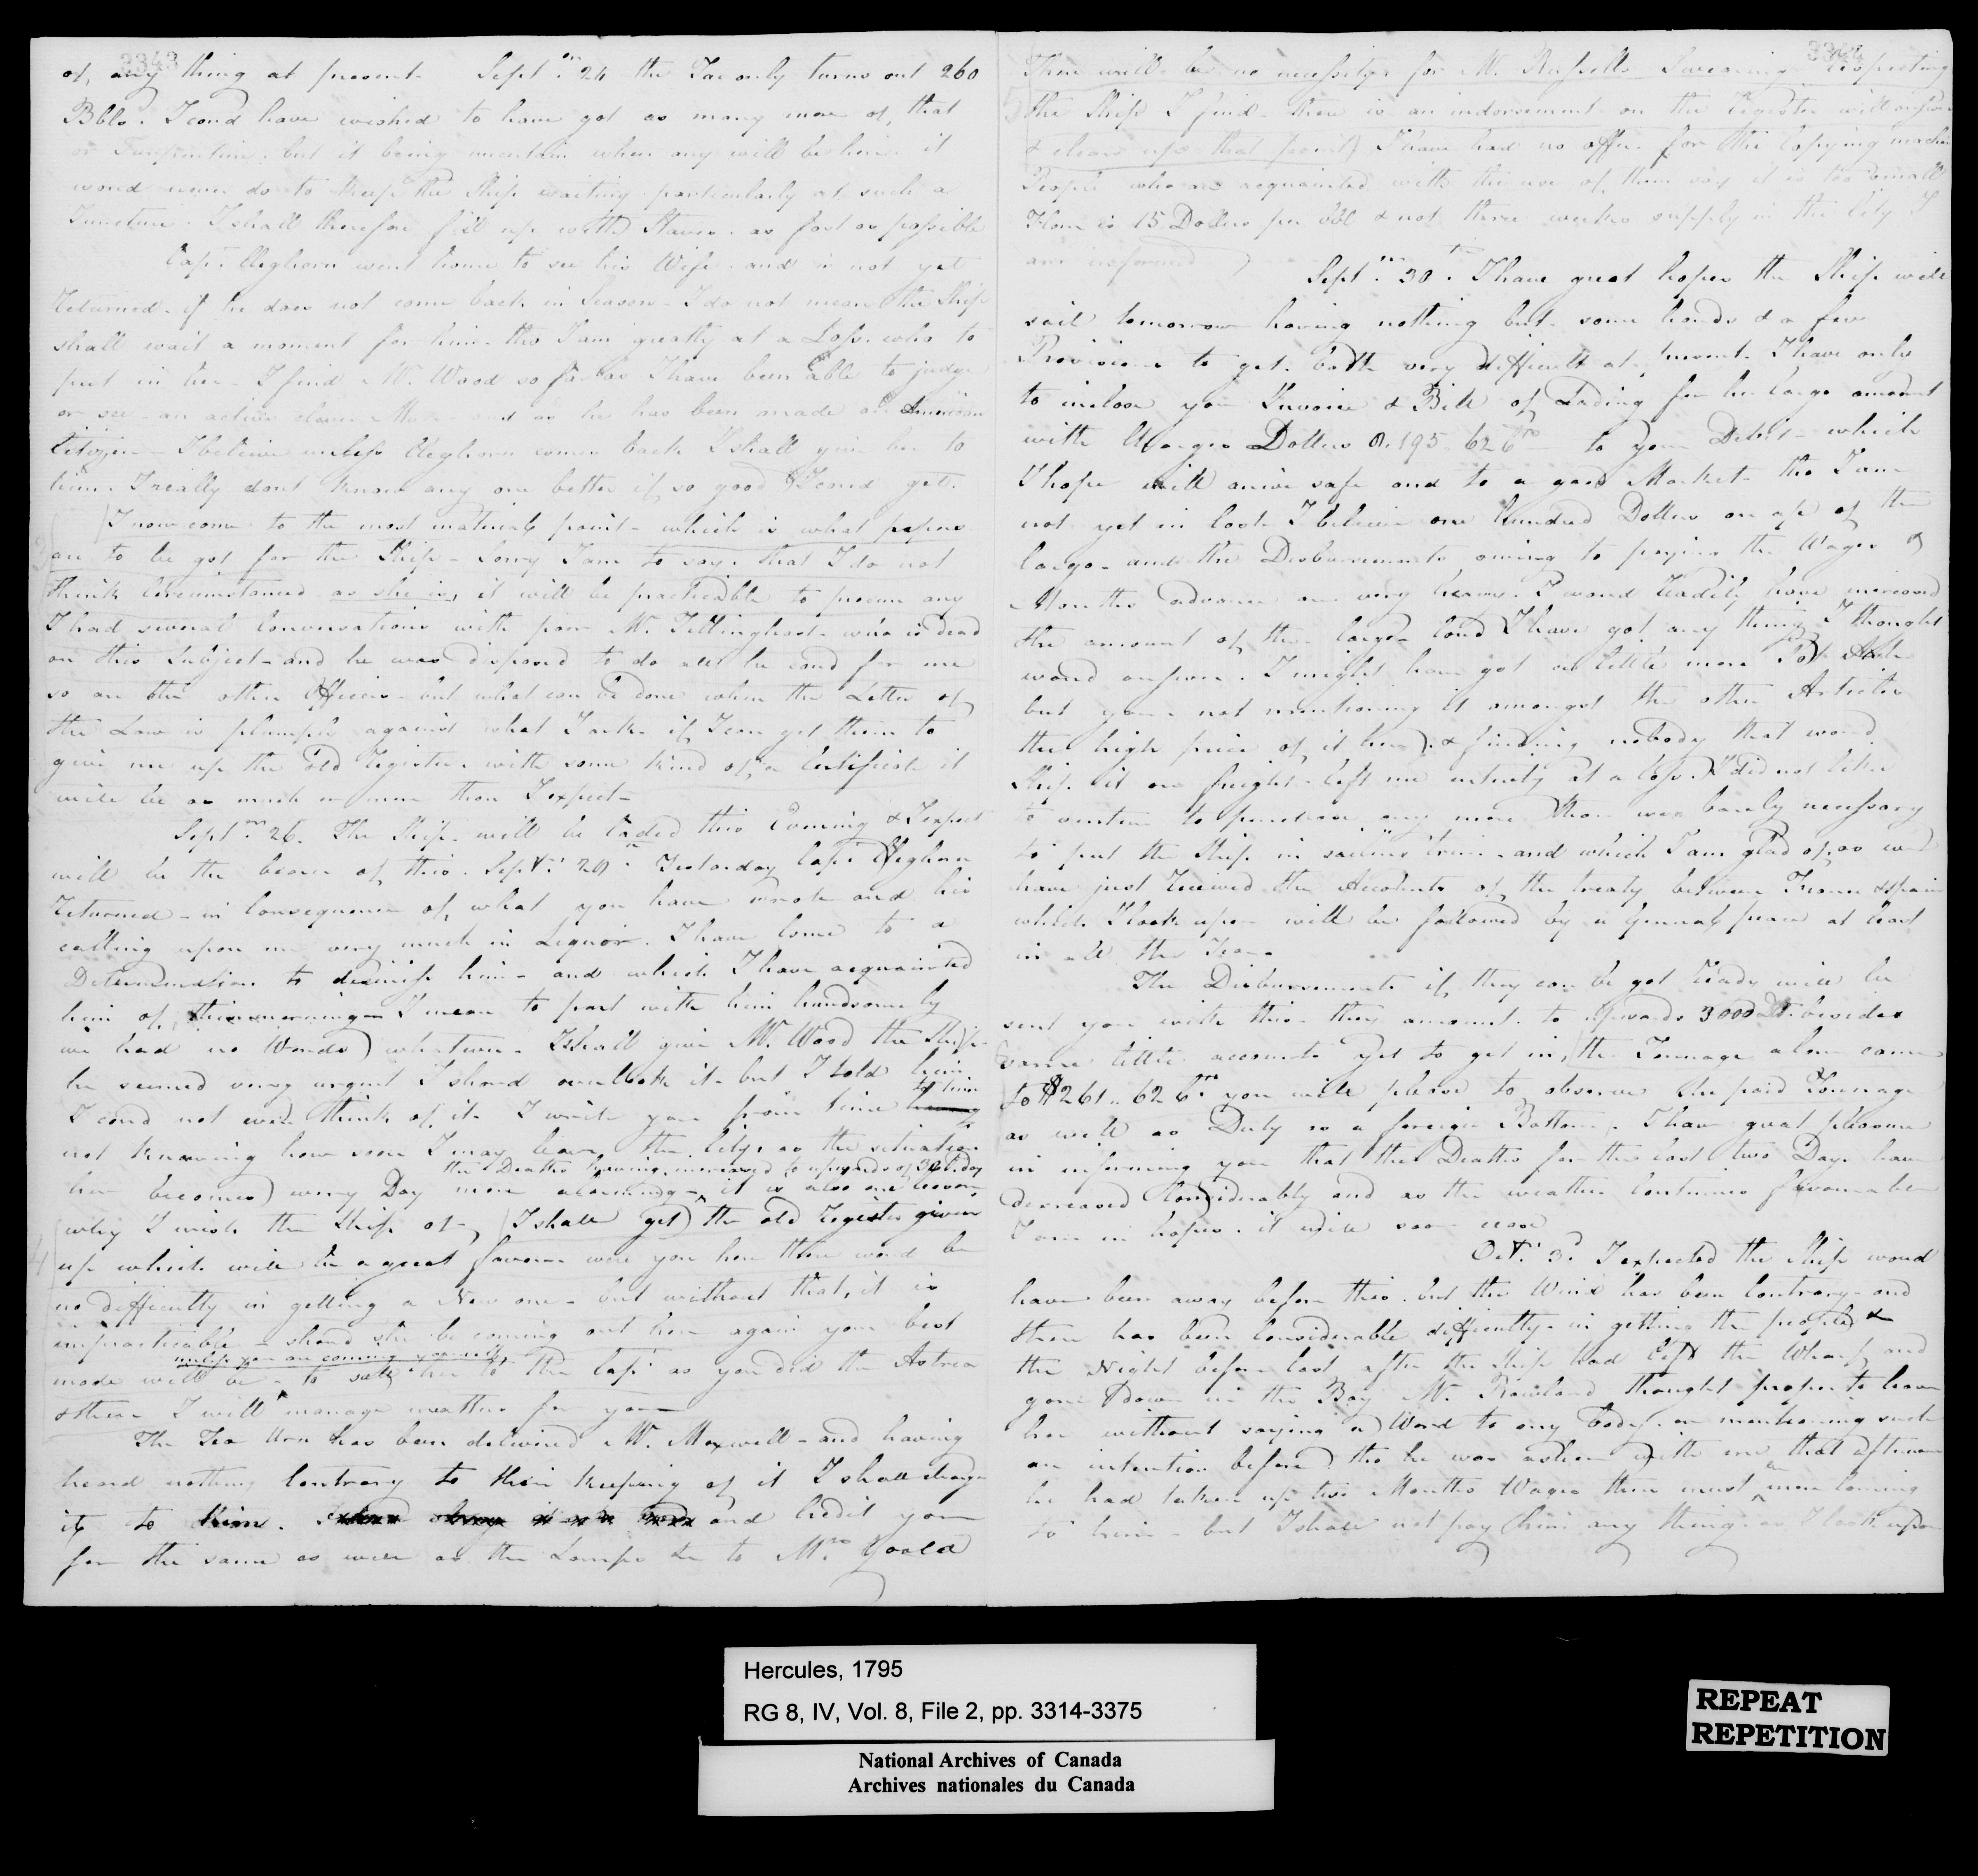 3343
of, any thing at present - Sept.m 24 the Tar only turns out 260
Bbls. I coud have wished to have got as many more of, that
or Turpentine. but it being uncertain when any will be here it
woud never do to keep the Ship waiting particularly at such a
Juncture. I shall therefore fill up with Staves. as fast as possible
Capt. Cleghorn went home to see his Wife. and is not yet
returned - if he does not come back in Season - I do not mean the Ship
shall wait a moment for him - tho I am greatly at a Loss. who to
put in her - I find Mr. Wood so far as I have been able to judge
or see - an active clever Man and as he has been made an American
Citizen - I believe unless Cleghorn comes back I shall give her to
him. I really dont know any one better if so good I coud get.
I now come to the most material point - which is what papers
3
are to be got for the Ship - Sorry I am to say. that I do not
think Circumstanced as she is, it will be practicable to procure any
I had several Conversations with poor Mr. Tillinghast - who is dead
on this Subject - and he was disposed to do all he coud for me
so are the other Officers - but what can be done when the Letter of
the Law is plump against what I ask - if I can get them to
give me up the old Register. with some kind of, a Certificate it
will be as much or more than I expect -
Sept.m 26. The Ship. will be loaded this Evening & I expect
will be the bearer of this. Sept.r 29th Yesterday Capt. Cleghorn
returned - in Consequence of, what you have wrote and his
calling upon me very much in Liquor. I have come to a
Determination to dismiss him - and which I have acquainted
him of, this morning - I mean to part with him handsomely
we had no Words whatever. I shall give Mr. Wood the Ship -
he seemed very urgent I shoud overlook it - but I told him
I coud not even think of it - I write you from time to time
not knowing how soon I may leave the City. as the situation
the Deaths having increased to upwards of 30 a day
here becomes every Day more alarming - it is also one reason
why I wish the Ship of - I shall get the old Register given
4
up which will be a great favour were you here there woud be
no difficulty in getting a New one - but without that, it is
impracticable - shoud she be coming out here again your best
unless you are coming yourself
mode will be - to sell her to the Capt. as you did the Astrea
& then I will manage matters for you
The Tea Urn has been delivered Mr. Maxwell - and having
heard nothing Contrary to their keeping of it I shall charge
it to him. and Credit you
for the same as well as the Lamps &c to Mrs. Goold
3344
There will be no necessity for Mr. Russells Swearing respecting
5
the Ship I find - there is an indorsement on the Register will answer
& clears up that point) I have had no offer for the Copying machine
People who are acquainted with the use of, them say it is too small
Flour is 15 Dollars per bbl & not three weeks supply in the City I
am informed
Sept.m 30th. I have great hopes the Ship will
sail tomorrow having nothing but some hands & a few
Provisions to get. both very difficult at, present. I have only
to inclose you Invoice & Bill of Lading for her Cargo amount
with Charges Dollars 195 62 6 to your Debit - which
I hope will arive safe and to a good Market - tho I am
not yet in Cash I believe one hundred Dollars on a/c of the
Cargo - and the Disbursements owing to paying the Wages &
Months advance are very heavy. I woud readily have increased
the amount of the Cargo - coud I have got any thing, I thought
woud answer. I might have got a little more Pot Ash
but your not mentioning it amongst the other Articles
the high price of it here). & finding nobody that woud
Ship it on freight - left me entirely at a loss. I did not like
to venture to purchase any more than was barely necessary
to put the Ship in sailing trim. and which I am glad of, as we
have just received the Accounts of the treaty between France & Spain
which I look upon will be followed by a General peace at least
in all the Year -
The Disbursements if, they can be got ready will be
sent you with this - they amount. to upwards 3000 Drs. besides
some little accounts yet to get in, the Tonnage alone came
to $261.. 62 6 you will please to observe she paid Tonnage
as well as Duty as a foreign Bottom. I have great pleasure
in informing you that the Deaths for the last two Days have
decreased Considerably and as the weather Continues favourable
I am in hopes. it will soon cease
Oct.r 3d. I expected the Ship woud
have been away before this. but the Wind has been Contrary - and
there has been Considerable difficulty - in getting the people &
the Night before last after the Ship had left the Wharf, and
gone Down in the Bay Mr. Rowland thought proper to leave
her without saying a Word to any body. or mentioning such
an intention before) tho he was ashore with me that afternoon
he had taken up two Months Wages there must be more Coming
to him - but I shall not pay him any thing - as I look upon
Hercules, 1795
RG 8, IV, Vol. 8, File 2, pp. 3314-3375
National Archives of Canada
Archives nationales du Canada
REPEAT
REPETITION